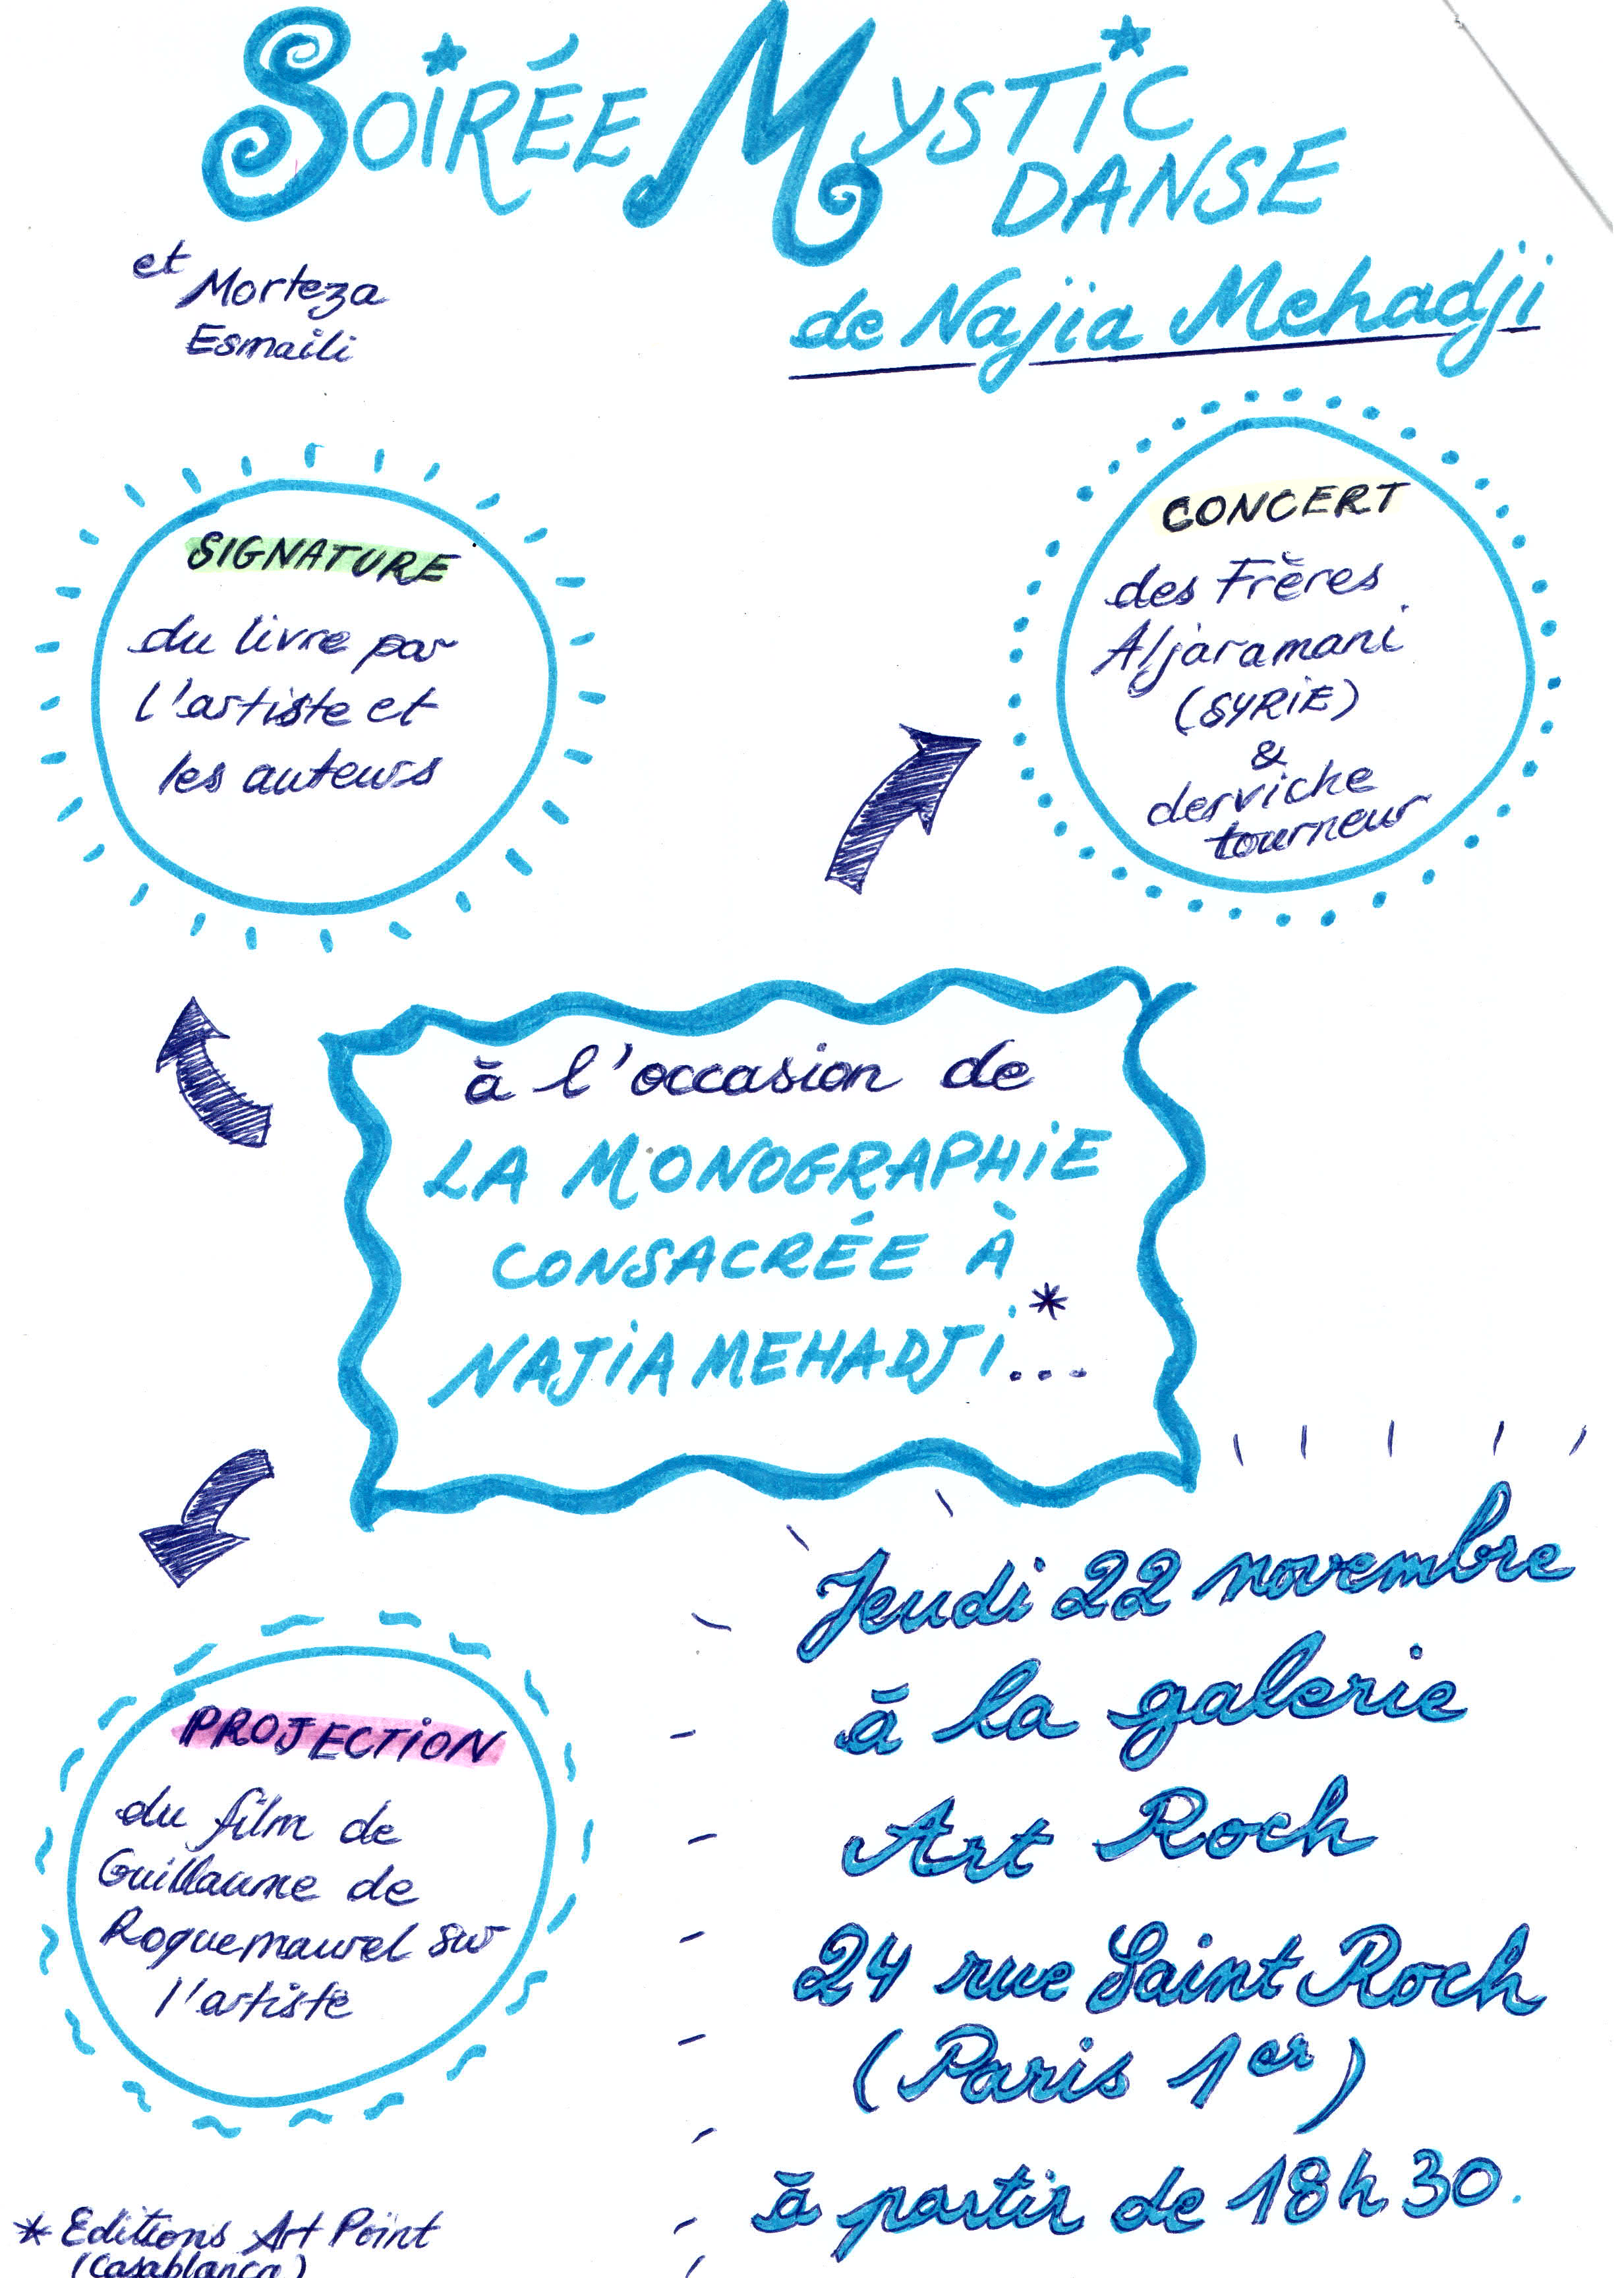 SOIRÉE MYSTIC
DANSE
de Najia Mehadji
et Morteza
Esmaili
SIGNATURE
du livre par
l'artiste et
les auteurs
CONCERT
des Frères
Aljaramani
(SYRIE)
&
derviche
tourneur
à l'occasion de
LA MONOGRAPHIE
CONSACRÉE À
NAJIA MEHADJI...*
PROJECTION
du film de
Guillaume de
Roquemaurel sur
l'artiste
Jeudi 22 novembre
à la galerie
Art Roch
24 rue Saint Roch
(Paris 1er)
à partir de 18h30.
* Editions Art Point
(Casablanca)